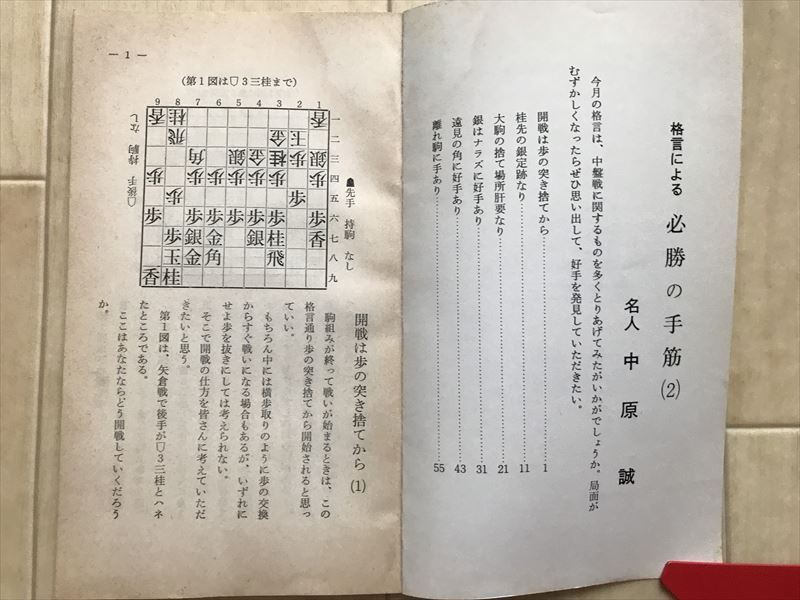 格言による 必勝の手筋(2)
名人 中原 誠
今月の格言は、中盤戦に関するものを多くとりあげてみたがいかがでしょうか。局面が
むずかしくなったらぜひ思い出して、好手を発見していただきたい。
開戦は歩の突き捨てから……1
桂先の銀定跡なり……11
大駒の捨て場所肝要なり……21
銀はナラズに好手あり……31
遠見の角に好手あり……43
離れ駒に手あり……55
— 1 —
(第1図は▽3三桂まで)
9 8 7 6 5 4 3 2 1
一
二
三
四
五
六
七
八
九
☗先手 持駒 なし
▽後手 持駒 なし
開戦は歩の突き捨てから (1)
駒組みが終って戦いが始まるときは、この
格言通り歩の突き捨てから開始されると思っ
ていい。
もちろん中には横歩取りのように歩の交換
からすぐ戦いになる場合もあるが、いずれに
せよ歩を抜きにしては考えられない。
そこで開戦の仕方を皆さんに考えていただ
きたいと思う。
第1図は、矢倉戦で後手が▽3三桂とハネ
たところである。
ここはあなたならどう開戦していくだろう
か。